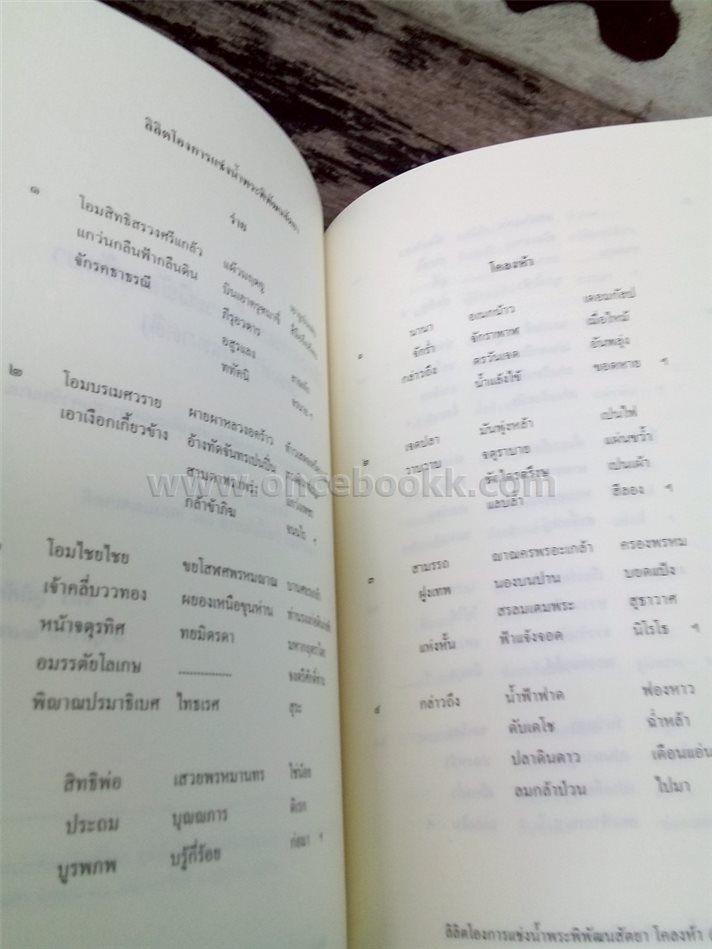 ลิลิตโองการแช่งน้ำพระพิพัฒนสัตยา
ร่าย
๑ โอมสิทธิสรวงศรีแกล้ว แผ้วมฤตยู
แกว่นกลืนฟ้ากลืนดิน บินเอาครุฑมาขี่
จักรคธาธรณี ภีรุอวตาร
อสูรแลง
ททัคนี
๒ โอมบรเมศวราย ผายผาหลวงอคร้าว
เอาเงือกเกี้ยวข้าง อ้างทัดจันทรเปนปิ่น
กล้าช้าภิฆ จนนไร ฯ
โอมไชยไชย ขยโสฬศพรหมญาณ
เจ้าคลี่บววทอง ผยองเหนือขุนห่าน
หน้าจตุรทิศ ทยมิตรดา
อมรรตัยโลเกษ ..............
พิญาณปรมาธิเบศ ไทธเรศ สุระ
สิทธิพ่อ เสวยพรหมานทร ใช่น้อย
ประถม บุญญการ ดิเรก
บูรพภพ บรู้กี่ร้อย ก่อมา ฯ
โคลงห้า
๑ นานา อเนกน้าว เดอมกัลป
จักร่ำ จักราพาฬ เมื่อไหม้
กล่าวถึง ตรวันเจด อันพลุ่ง
น้ำแล้งไข้ ขอดหาย ฯ
๒ เจดปลา มันพุ่งหล้า เปนไฟ
วาบวาบ จตุราบาย แผ่นขว้ำ
ชักไตรตรึงษ เปนเผ้า
แลบล้ำ สีลอง ฯ
๓ สามรรถ ญาณครพรอะเกล้า ครองพรหม
ฝูงเทพ นองบนปาน บอดแป้ง
สรลมเตมพระ สุธาวาศ
แห่งหั้น ฟ้าแจ้งจอด นิโรโธ ฯ
๔ กล่าวถึง น้ำฟ้าฟาด ฟองหาว
ดับเดโช ฉ่ำหล้า
ปลาดินดาว เดือนแอ่น
ลมกล้าป่วน ไปมา
ลิลิตโองการแช่งน้ำพระพิพัฒนสัตยา โคลงห้า
www.oncebookk.com